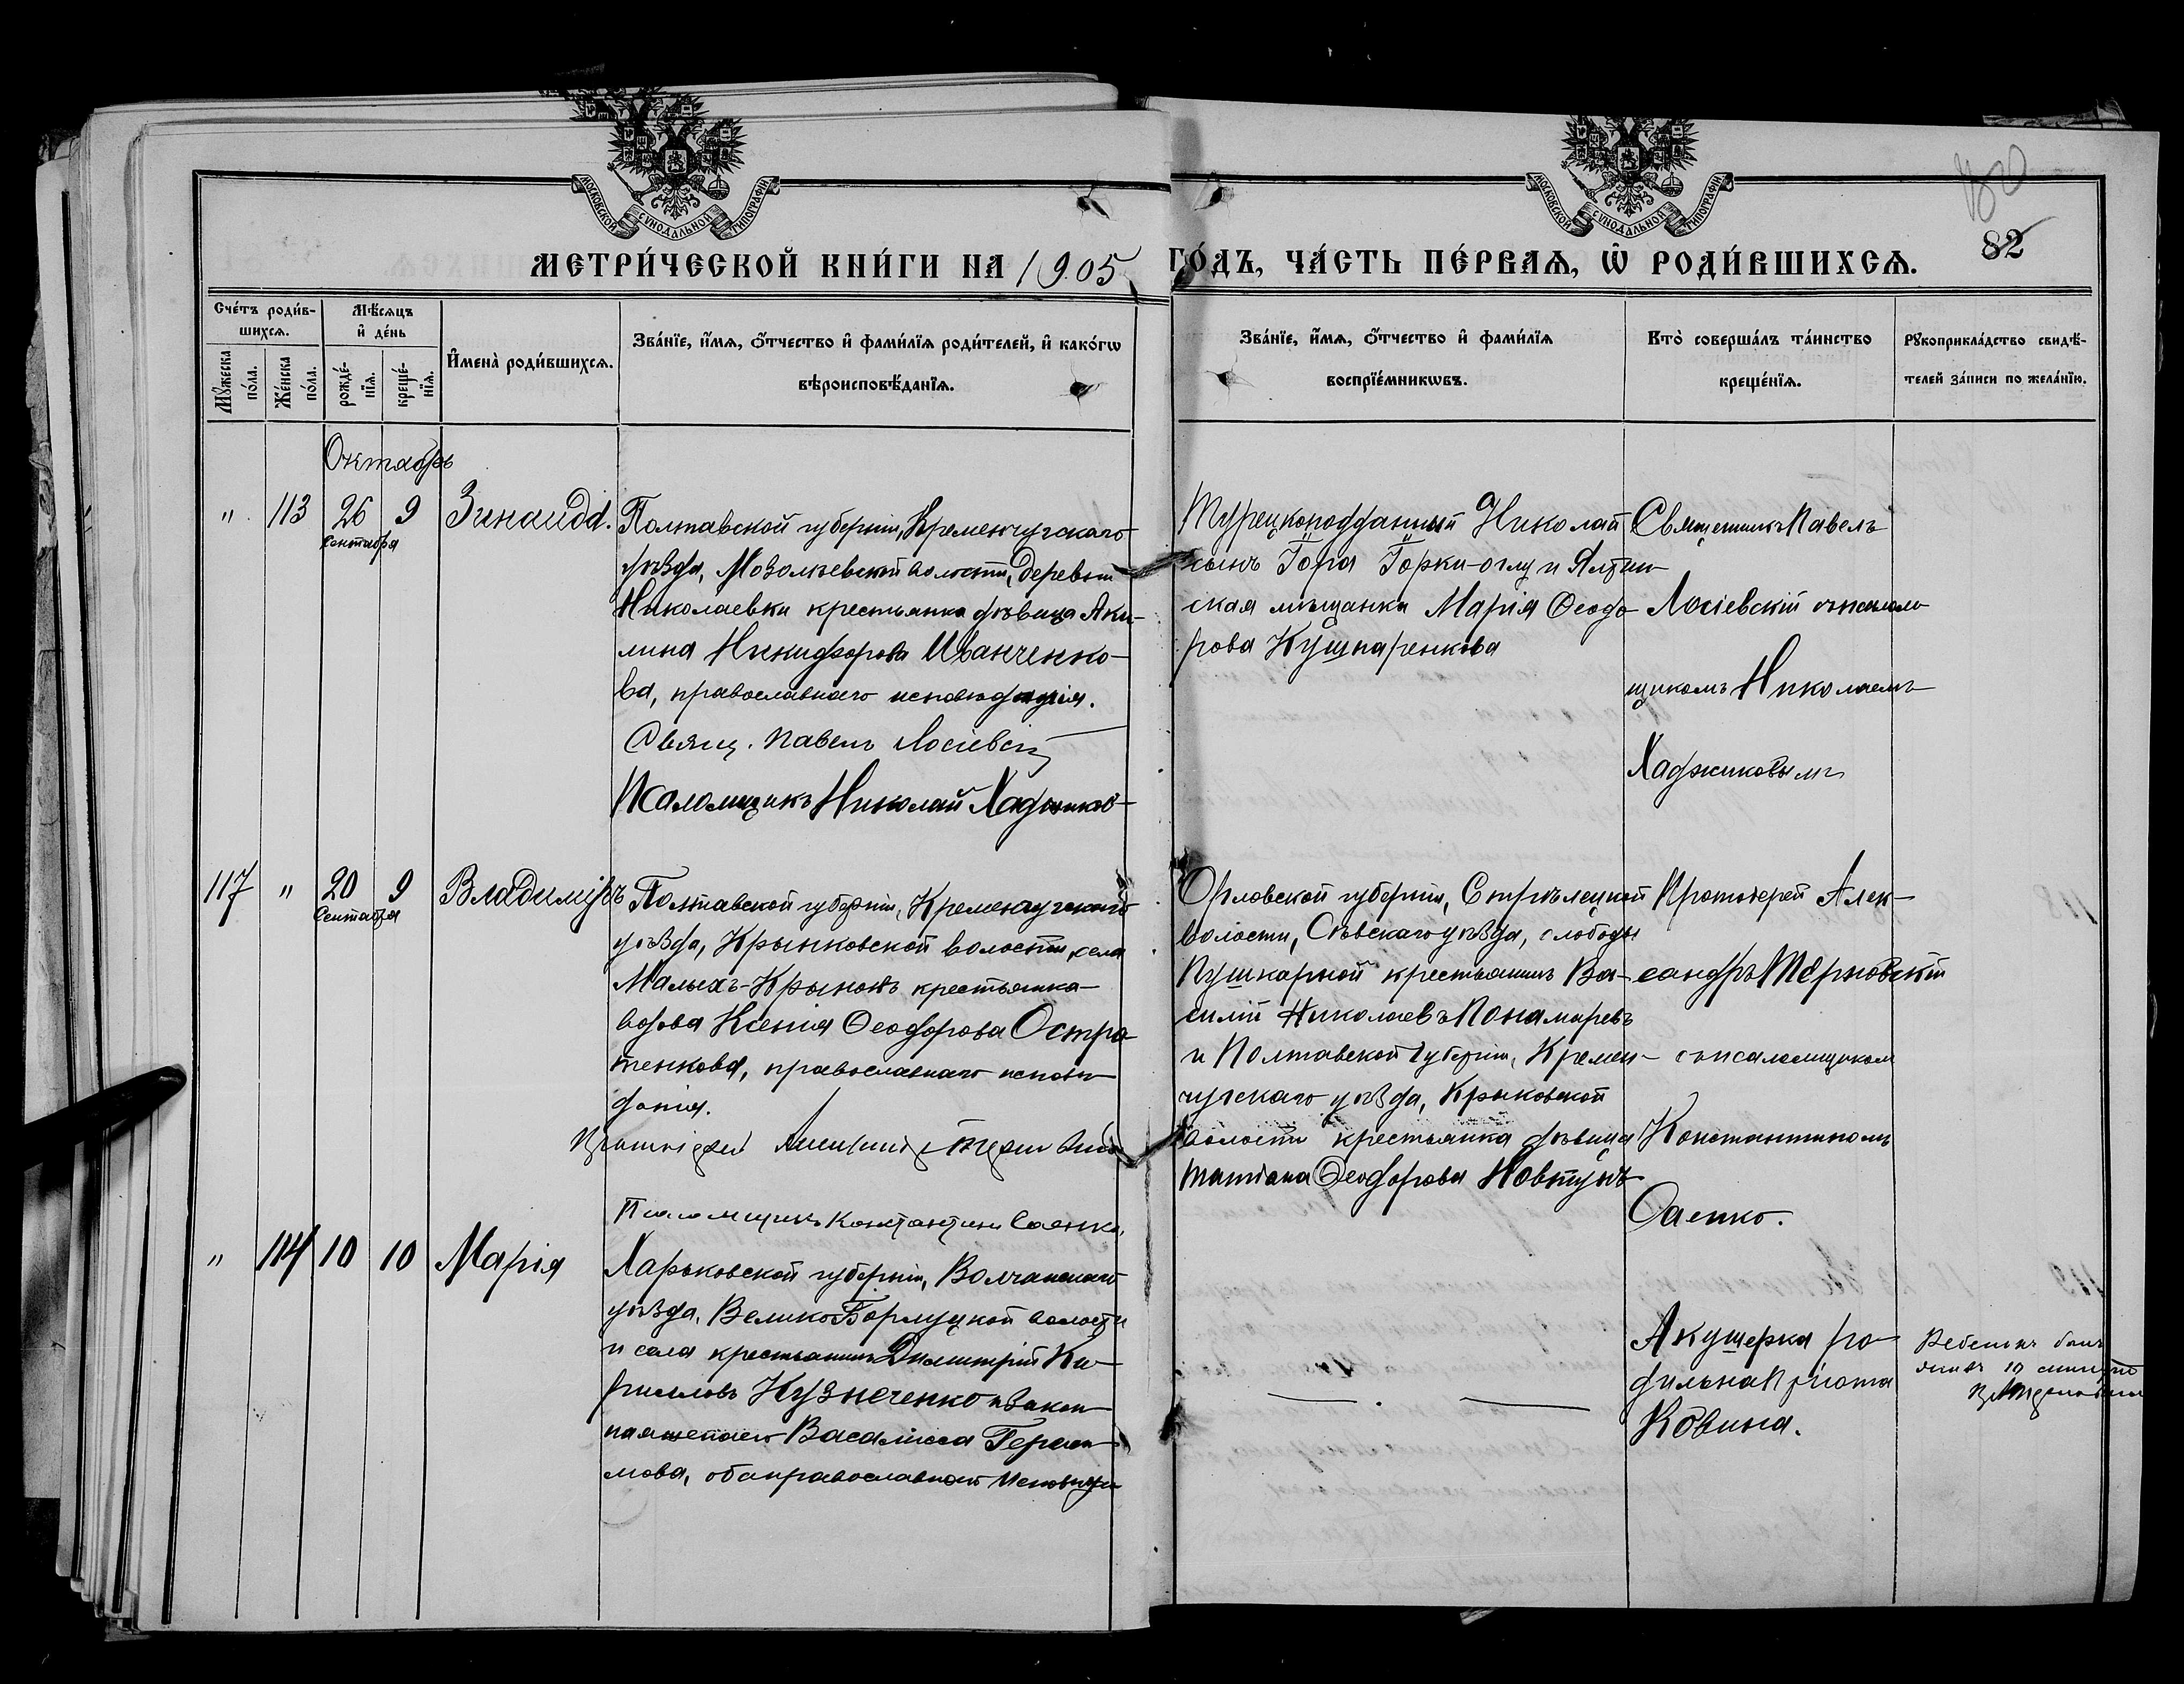 МОСКОВСКОЙ СѴНОДАЛЬНОЙ ТИПОГРАФІИ
МОСКОВСКОЙ СѴНОДАЛЬНОЙ ТИПОГРАФІИ
82
МЕТРИ́ЧЕСКОЙ КНИ́ГИ НА 1905 ГО́ДЪ, ЧА́СТЬ ПЕ́РВАѦ, Ѡ҆ РОДИ́ВШИХСѦ.
Сче́тъ роди́в-
шихсѧ.
Мꙋ́жеска по́ла.
Же́нска по́ла.
Мѣ́сѧцъ
и҆ де́нь
рожде́-
нїѧ.
креще́-
нїѧ.
И҆мена̀ роди́вшихсѧ.
Зва́нїе, и҆́мѧ, ѻ҆́тчество и҆ фами́лїѧ роди́телей, и҆ како́гѡ
вѣроисповѣ́данїѧ.
Зва́нїе, и҆́мѧ, ѻ҆́тчество и҆ фами́лїѧ
воспрїе́мникѡвъ.
Кто̀ соверша́лъ та́инство
креще́нїѧ.
Рꙋкоприкла́дство свидѣ́-
телей за́писи по жела́нїю.
Октябрь
" 113 26 9 Зинаида.
Сентября
Полтавской губерніи, Кременчугскаго
уѣзда, волости, деревни
Николаевки крестьянка дѣвица Аки-
лина Никифорова Иванченко-
ва, православнаго исповѣданія.
Свящ. Павелъ Лосіевскій
Псаломщикъ Николай Хаджиковъ
Турецкоподданный Николай
сынъ Гора Горки-оглу и Ялтин-
ская мѣщанка Марія Ѳеодо-
рова Кушнаренкова
Священникъ Павелъ
Лосіевскій съ псалом-
щикомъ Николаемъ
Хаджиковымъ
117 " 20 9 Владиміръ
Сентября
Полтавской губерніи, Кременчугскаго
уѣзда, Крынковской волости, села
Малыхъ-Крынокъ крестьянка
вдова Ксенія Ѳеодорова Остра-
тенкова, православнаго исповѣ-
данія.
Протоіерей Александръ Терновскій
Псаломщикъ Константинъ Саенко.
Орловской губерніи, Стрѣлецкой
волости, Сѣвскаго уѣзда, слободы
Пушкарной крестьянинъ Ва-
силій Николаевъ Понамаревъ
и Полтавской губерніи, Кремен-
чугскаго уѣзда, Крыковской
волости крестьянка дѣвица
Татіана Ѳеодорова Ковтунъ
Протоіерей Алек-
сандръ Терновскій
съ псаломщикомъ
Константиномъ
Саенко.
" 114 10 10 Марія
Харьковской губерніи, Волчанскаго
уѣзда, Велико Бурлуцкой волости
и села крестьянинъ Димитрій Ки-
рилловъ Кузнеченко и закон-
ная жена его Василисса Гераси-
мова, оба православнаго исповѣда-
Акушерка ро-
дильна Пріюта
Ковина.
Ребенокъ былъ
живъ 10 минутъ